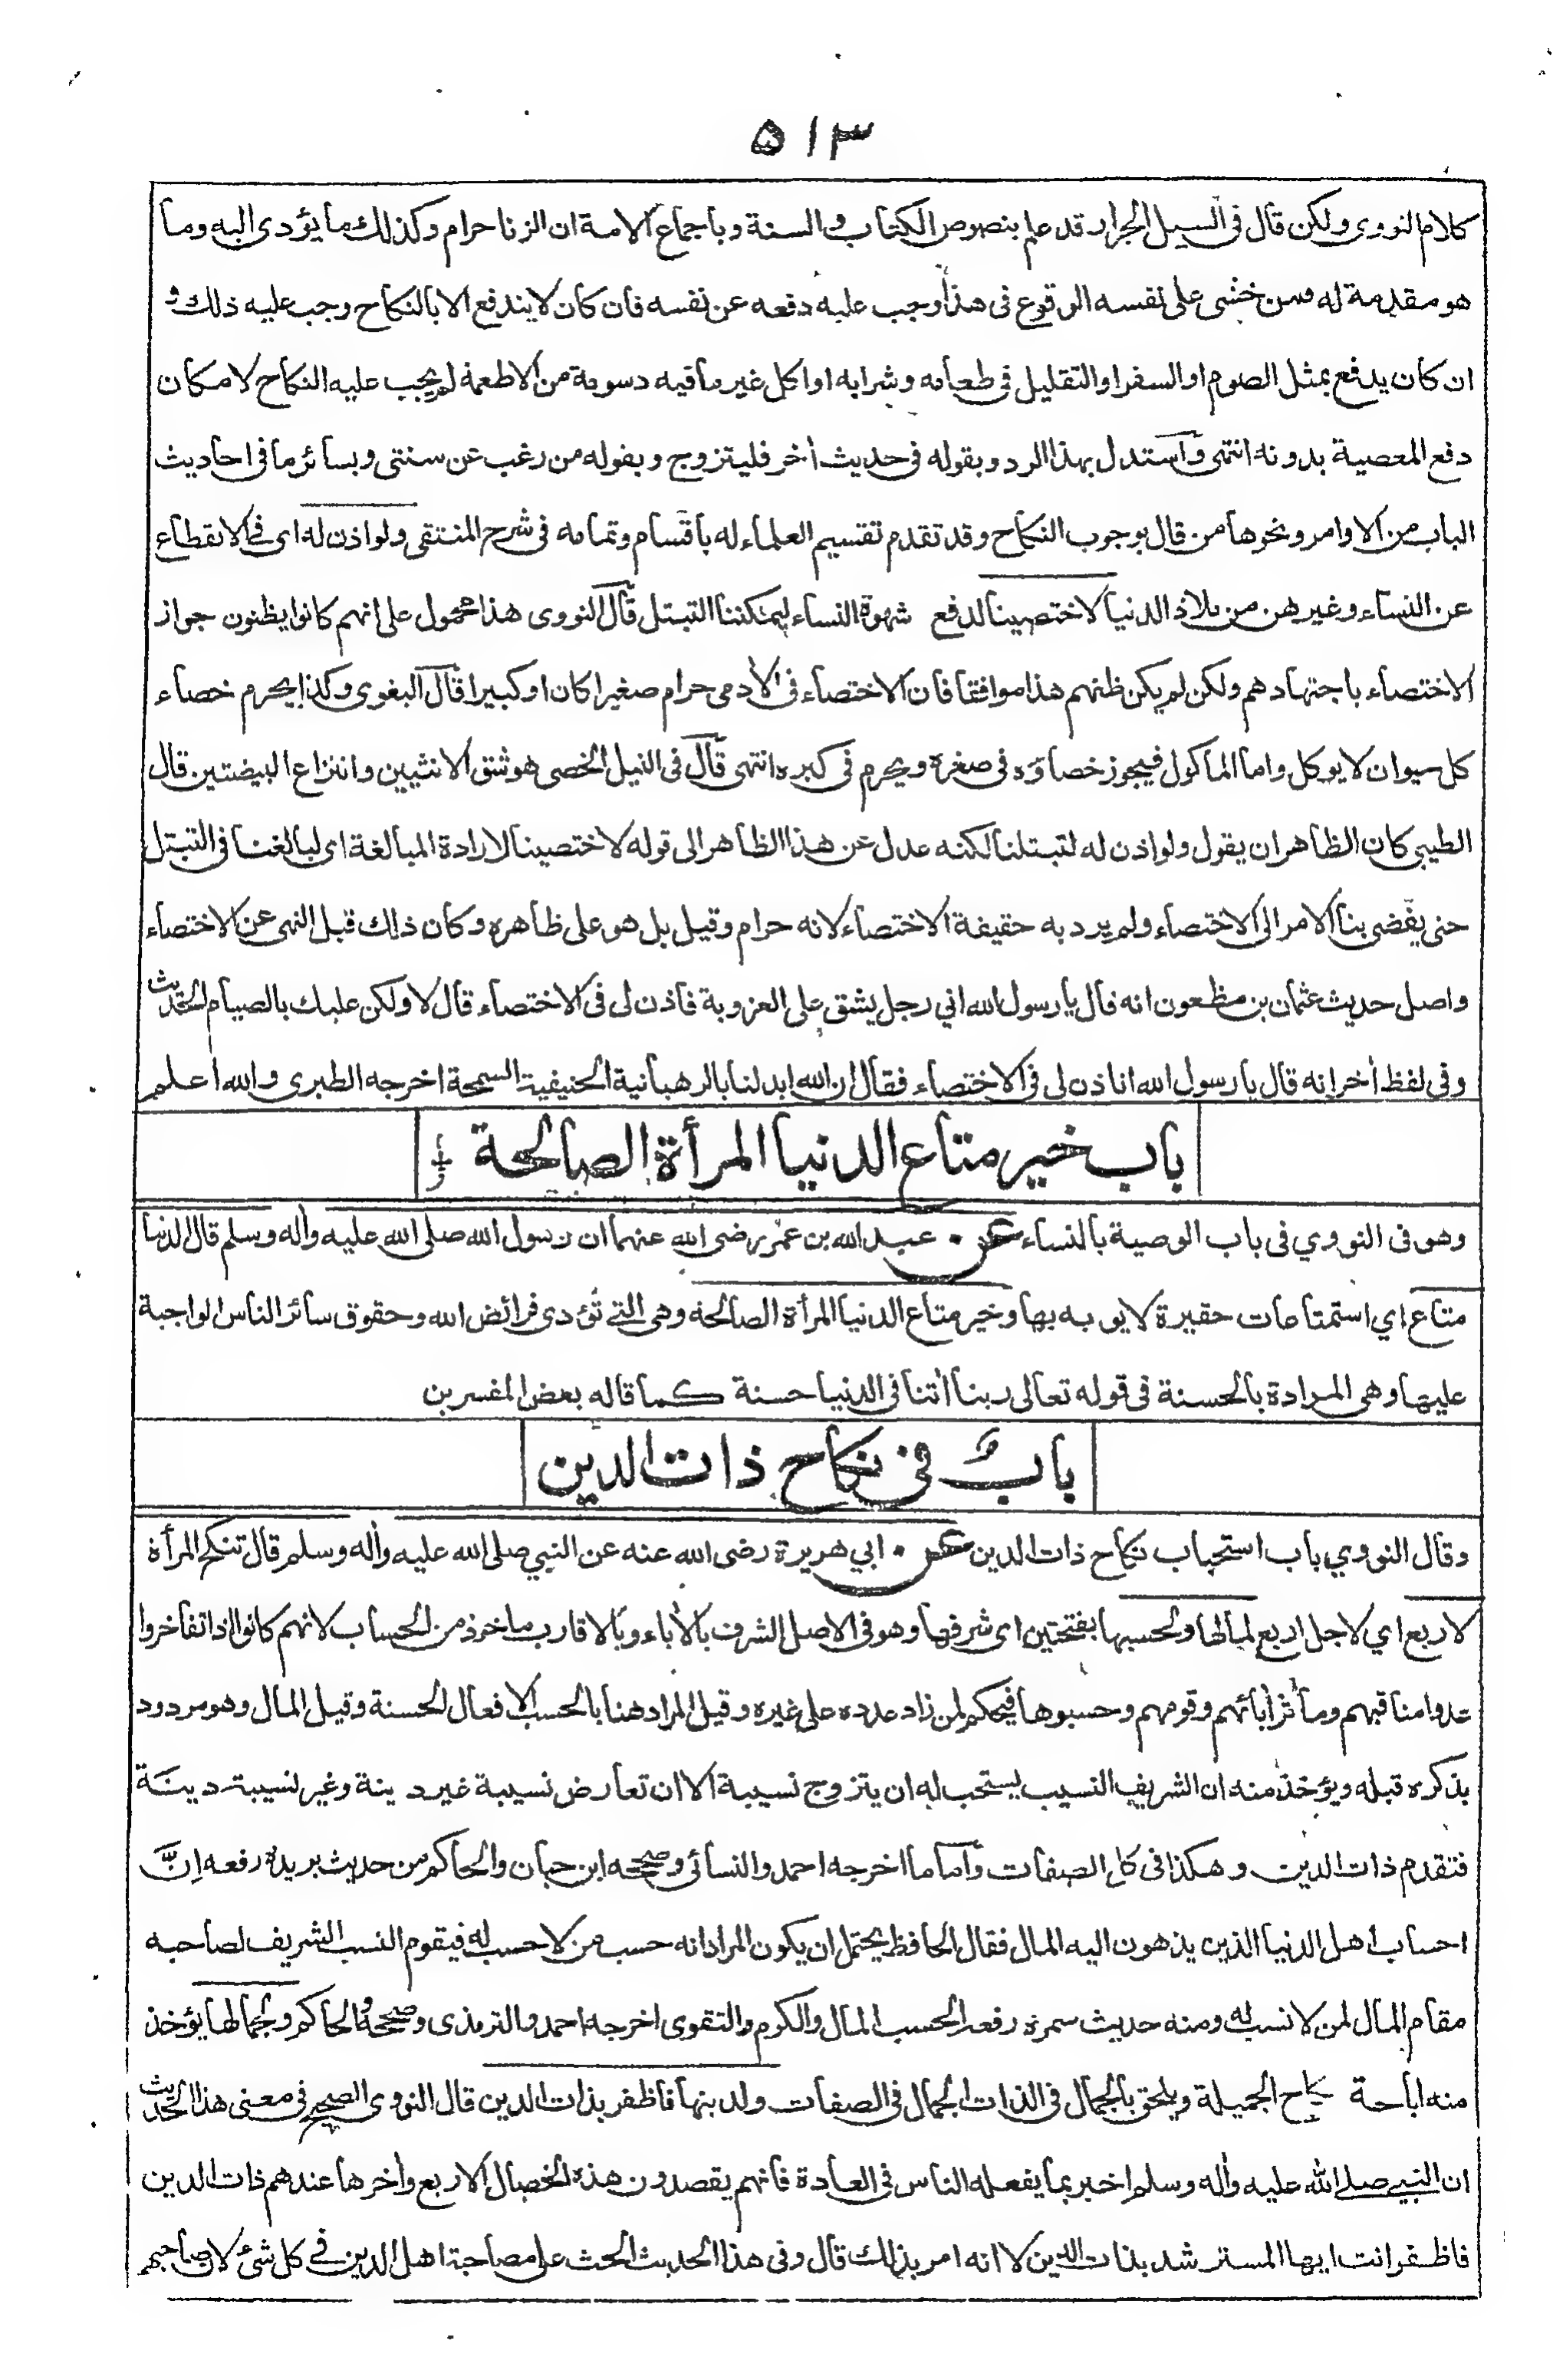 ٥١٣
كلام النووي ولكن قال في السيل الجرار قد علم بنصوص الكتاب والسنة وباجماع الامة ان الزنا حرام وكذلك ما يؤدى اليه وما
هو مقدمة له ومن خشى على نفسه الوقوع فى هذا وجب عليه دفعه عن نفسه فان كان لا يندفع الا بالنكاح وجب عليه ذلك و
ان كان يدفع بمثل الصوم او السفر او التقليل فى طعامه وشرابه او اكل غير ما فيه دسومة من الاطعمة لم يجب عليه النكاح لامكان
دفع المعصية بدونه انتهى واستدل بهذا الرد وبقوله فى حديث أخر فليتزوج وبقوله من رغب عن سنتى وبسائر ما فى احاديث
الباب من الاوامر ونحوها من قال بوجوب النكاح وقد تقدم تقسيم العلماء له باقسام وتمامه فى شرح المنتقى ولو اذن له اى فى الانقطاع
عن النساء وغيرهن من بلاذ الدنيا لاختصينا لدفع شهوة النساء ليمكننا التبتل قال النووى هذا محمول على انهم كانوا يظنون جواز
الاختصاء باجتهادهم ولكن لم يكن ظنهم هذا موافقا فان الاختصاء فى الأدمى حرام صغيرا كان او كبيرا قال البغوى وكذا يحرم خصاء
كل سيوان لا يوكل واما الماكول فيجوز خصاؤه فى صغره ويحرم فى كبره انتهى قال فى النيل الخصى هو شق الانثيين وانتزاع البيضتين قال
الطيبي كان الظاهر ان يقول ولو اذن له لتبتلنا لكنه عدل عن هذا الظاهر الى قوله لاختصينا لارادة المبالغة اى لبالغنا فى التبتل
حتى يفضى بنا الامر الى الاختصاء ولم يرد به حقيقة الاختصاء لانه حرام وقيل بل هو على ظاهره وكان ذلك قبل النهى عن الاختصاء
واصل حديث عثمان بن مظعون انه قال يا رسول الله اني رجل يشق على العزوبة فاذن لى فى الاختصاء قال لا ولكن عليك بالصيام الحديث
وفى لفظ أخر انه قال يا رسول الله اتاذن لى فى الاختصاء فقال ان الله ابدلنا بالرهبانية الحنيفية السمحة اخرجه الطبرى والله اعلم
باب خير متاع الدنيا المرأة الصالحة
وهو فى النووي فى باب الوصية بالنساء عن عبد الله بن عمر رضى الله عنهما ان رسول الله صلى الله عليه وأله وسلم قال الدنيا
متاع اي استمتاعات حقيرة لا يوبه بها وخير متاع الدنيا المرأة الصالحة وهى التي تؤدى فرائض الله وحقوق سائر الناس الواجبة
عليها وهى المرادة بالحسنة فى قوله تعالى ربنا أتنا فى الدنيا حسنة كما قاله بعض المفسرين
باب فى نكاح ذات الدين
وقال النووي باب استحباب نكاح ذات الدين عن ابي هريرة رضى الله عنه عن النبي صلى الله عليه وأله وسلم قال تنكح المرأة
لاربع اي لاجل اربع لمالها ولحسبها بفتحتين اى شرفها وهو فى الاصل الشرف بالأباء وبالاقارب ماخوذ من الحساب لانهم كانوا اذا تفاخروا
عدوا مناقبهم ومأثر أبائهم وقومهم وحسبوها فيحكم لمن زاد عدده على غيره وقيل المراد هنا بالحسب الافعال الحسنة وقيل المال وهو مردود
بذكره قبله ويؤخذ منه ان الشريف النسيب يستحب له ان يتزوج نسيبة الا ان تعارض نسيبة غير دينة وغير نسيبة دينة
فتقدم ذات الدين وهكذا فى كل الصفات وأما ما اخرجه احمد والنسائى وصححه ابن حبان والحاكم من حديث بريدة رفعه اِنَّ
احساب اهل الدنيا الذين يذهون اليه المال فقال الحافظ يحتمل ان يكون المراد انه حسب من لا حسب له فيقوم النسب الشريف لصاحبه
مقام المال لمن لا نسب له ومنه حديث سمرة رفعه الحسب المال والكرم والتقوى اخرجه احمد والترمذى وصححه والحاكم ولجمالها يؤخذ
منه اباحة نكاح الجميلة ويلحق بالجمال فى الذات الجمال فى الصفات ولدينها فاظفر بذات الدين قال النووى الصحيح فى معنى هذا الحديث
ان النبي صلى الله عليه وأله وسلم اخبر بما يفعله الناس فى العادة فانهم يقصدون هذه الخصال الاربع وأخرها عندهم ذات الدين
فاظفر انت ايها المسترشد بذات الدين لا انه امر بذلك قال وفى هذا الحديث الحث على مصاحبة اهل الدين فى كل شئ لان صاحبهم